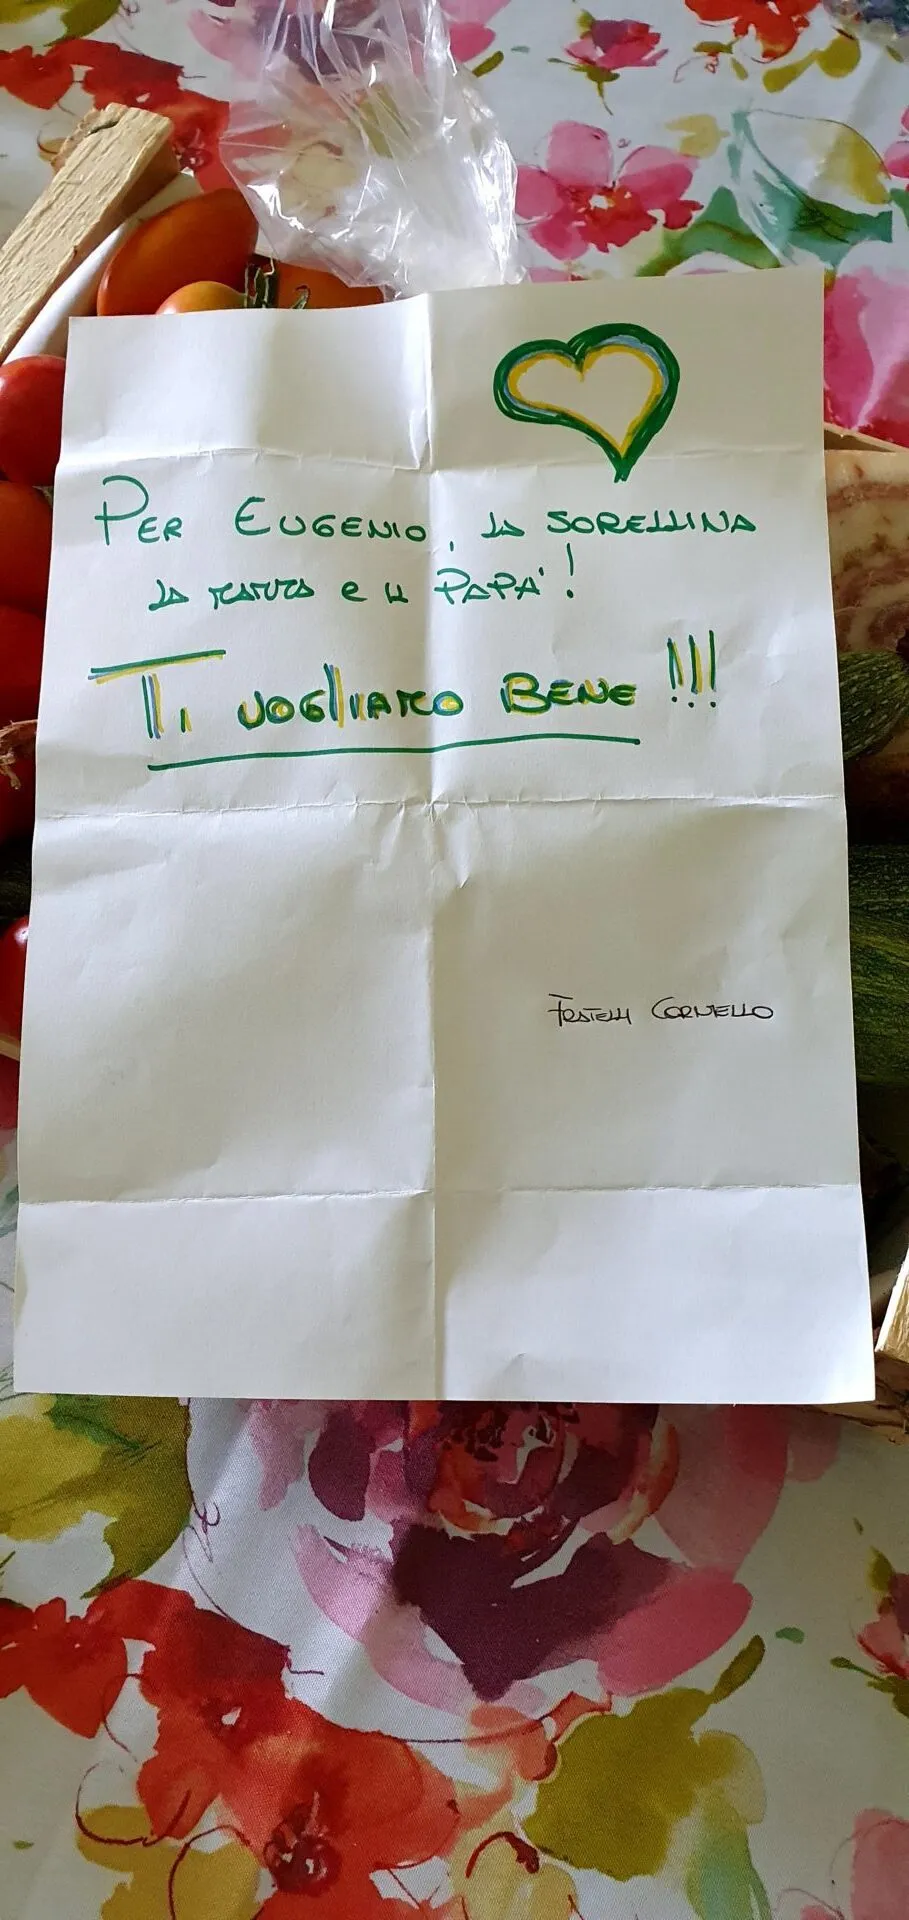 PER EUGENIO, LA SORELLINA
LA MAMMA E IL PAPA'!
TI VOGLIAMO BENE!!!
FRATELLI CORNIELLO